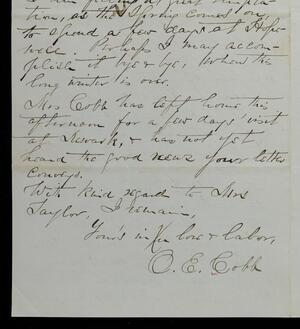 great
tion, as the Spring comes on,
to spend a few days at Hope
well. Perhaps I may accom-
plish it bye & bye, when the
long winter is over.
Mrs Cobb has left home this
afternoon for a few days' visit
at Newark, & has not yet
heard the good news your letter
conveys.
With kind regards to Mrs
Taylor, I remain,
Your's in love & labor,
O. E. Cobb